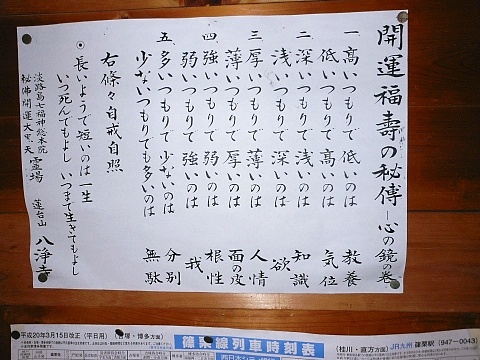 開運福壽の秘傳―心の鏡の巻
一 高いつもりで低いのは 教養
低いつもりで高いのは 気位
二 深いつもりで浅いのは 知識
浅いつもりで深いのは 欲
三 厚いつもりで薄いのは 人情
薄いつもりで厚いのは 面の皮
四 強いつもりで弱いのは 根性
弱いつもりで強いのは 我
五 多いつもりで少ないのは 分別
少ないつもりでも多いのは 無駄
右條々自戒自照
◉長いようで短いのは一生
いつ死んでもよし いつまで生きてもよし
淡路島七福神総本院
秘佛開運大黒天 霊場 蓮台山 八浄寺
平成20年3月15日改正(平日用) (吉塚・博多方面)
篠栗線列車時刻表
(桂川・直方方面) JR九州 篠栗駅 (947-0043)